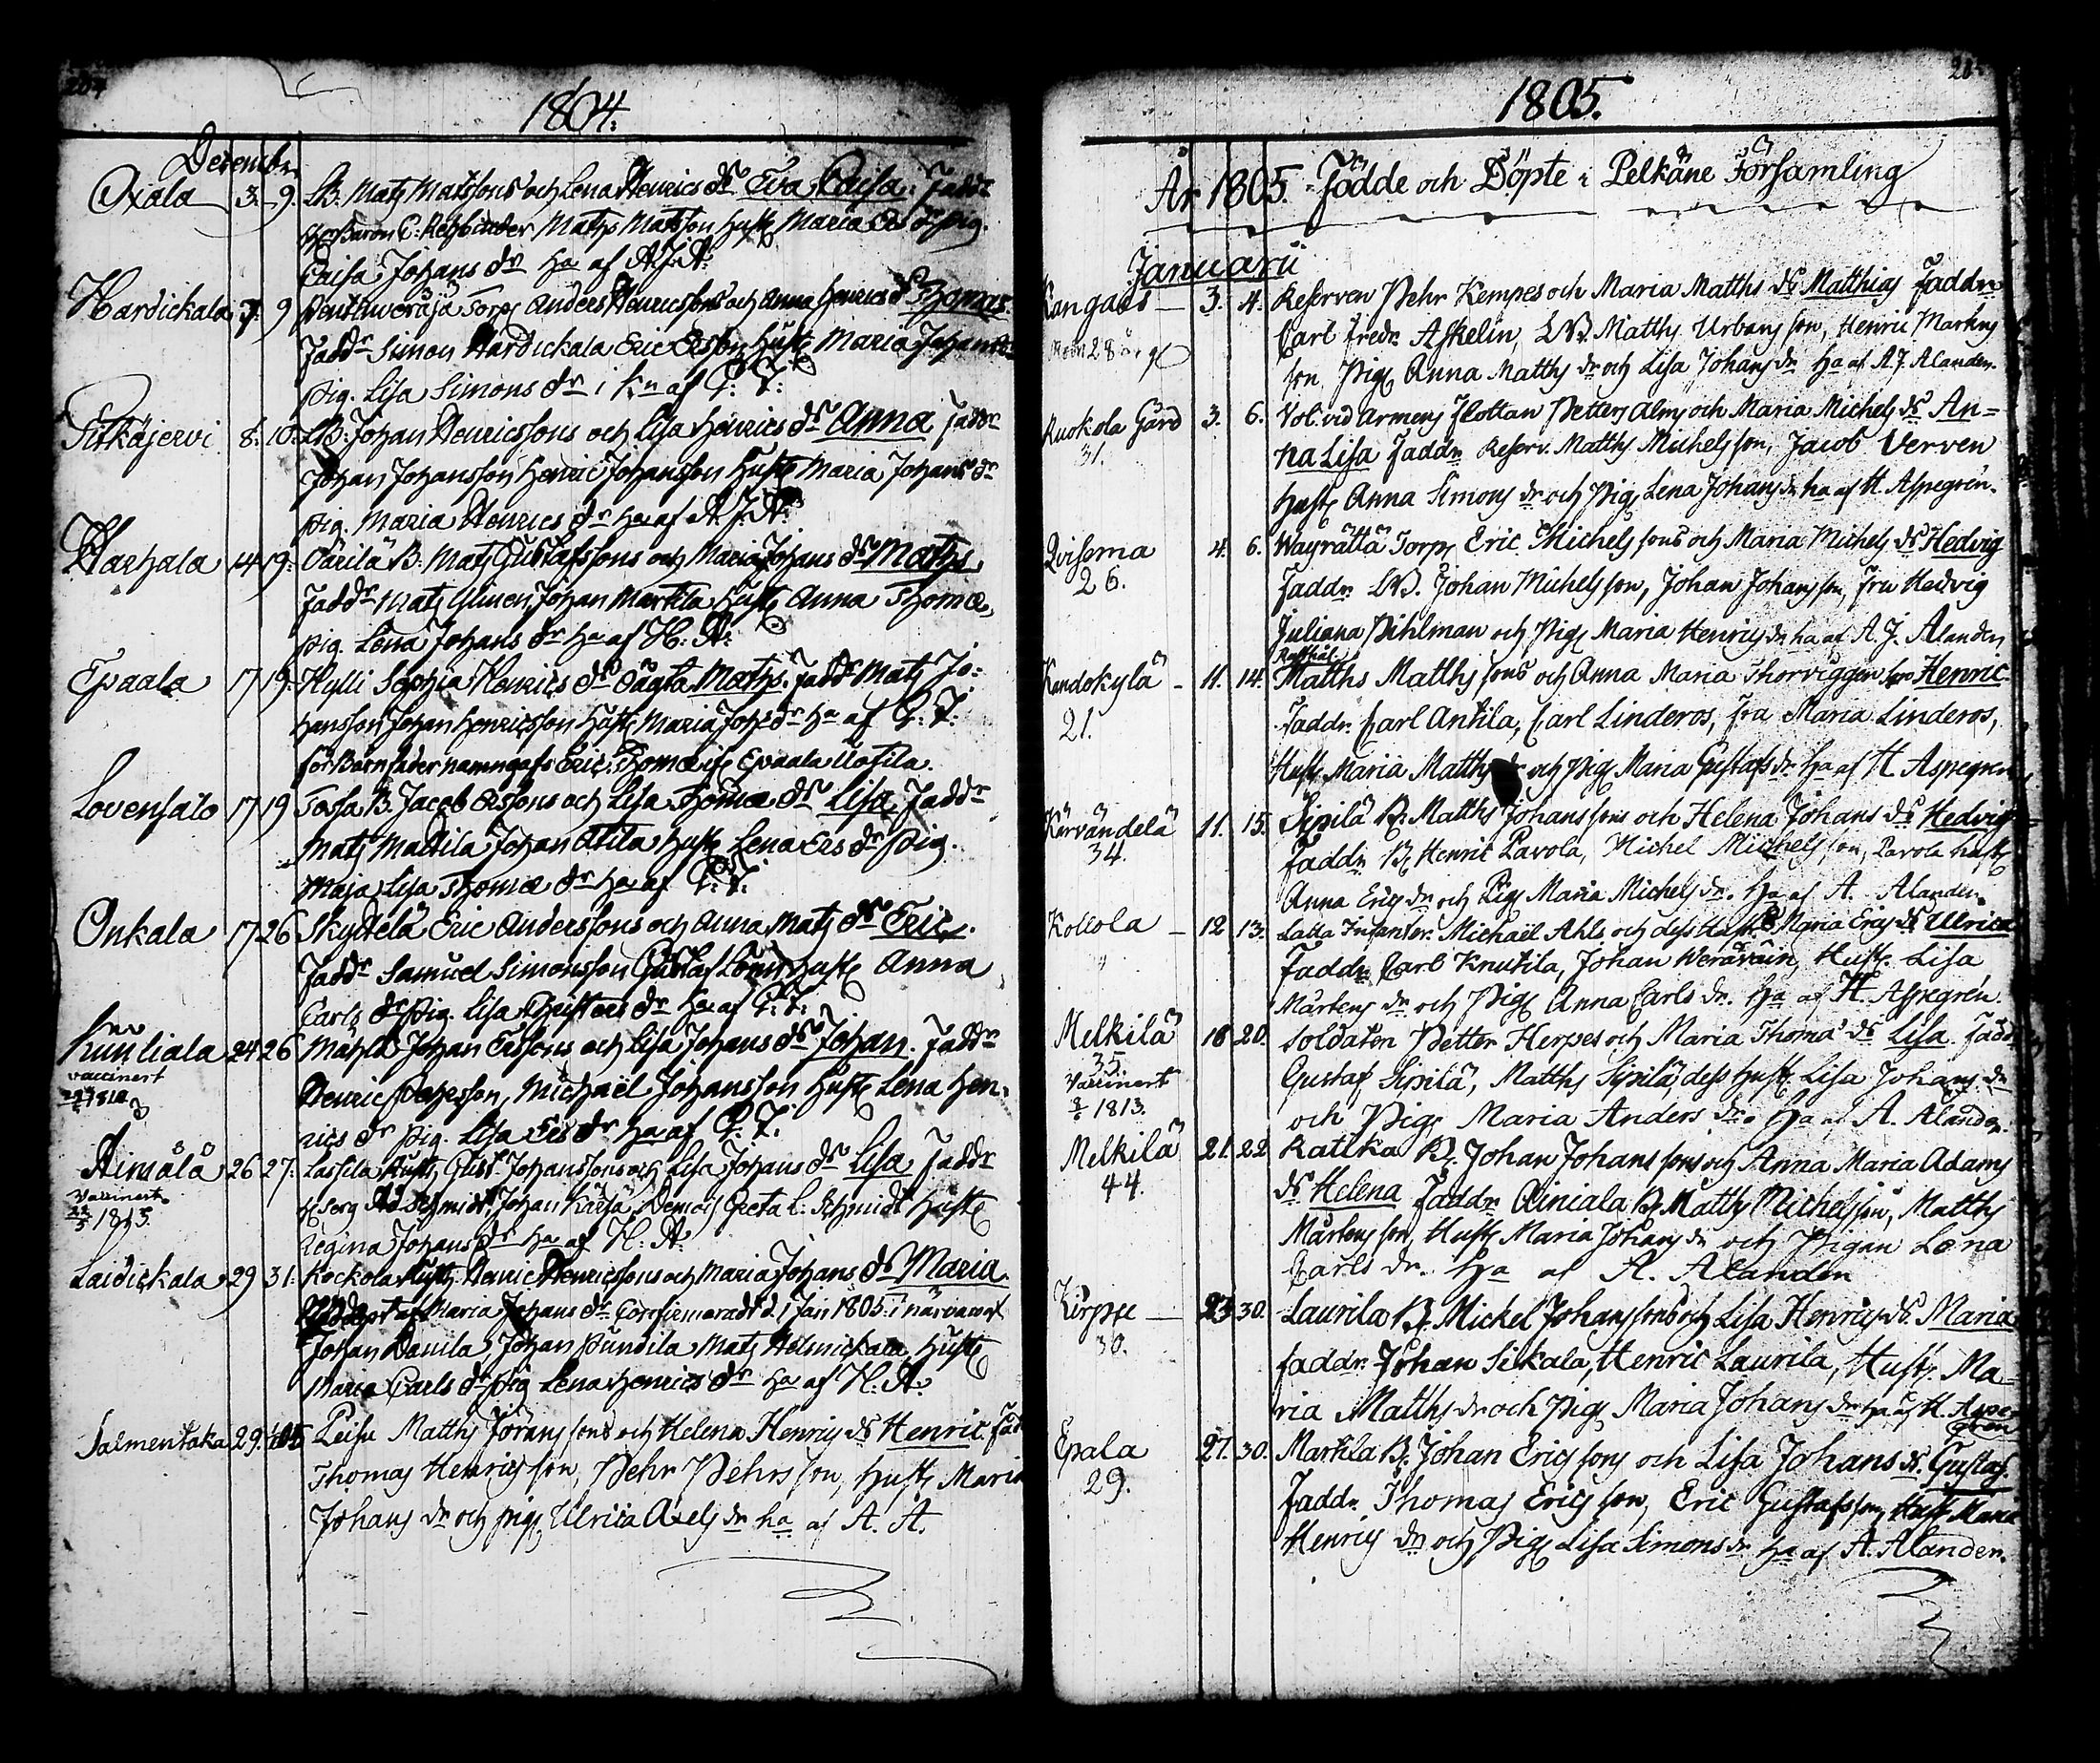 204
1804.
Decembr.
Oxala 3. 9. LB. Matz Matssons och Lena Henrics dr Eva Caisa. Faddr
Baron C. Rehbinder Mathys Matsson Hustr Maria Ers dr Pig.
Caisa Johans dr Ha af A.J.A.
Hardickala 7. 9 Torp. Anders Henricssons och Anna Henrics dr Thomas.
Faddr Simon Hardickala Eric Ersson Hustr Maria Johans dr
pig. Lisa Simons dr i Kn af G. T.
Pitkäjervi 8. 10. LB. Johan Henricssons och Lisa Henrics dr Anna Faddr
Johan Johansson Henric Johansson Hustr Maria Johans dr
pig. Maria Henrics dr ha af A. J. A.
Harhala 14 19. Oärilä B. Matz Gustafssons och Maria Johans dr Maths.
Faddr Matz Johan Martila Hustr Anna Thomæ
pig. Lena Johans dr ha af H. A.
Epaala 17 19. Kylli Sophia Henrics dr oägta Maths. Faddr Matz Jo-
hansson Johan Henricsson Hustr Maria Joh: dr ha af G. T.
för Barnfader namngafs Eric Thomæ ifr Epaala Uotila.
Lovensalo 17 19 Tossa B. Jacob Erssons och Lisa Thomæ dr Lisa Faddr
Matz Mattila Johan Attila Hustr Lena Ers dr Pig.
Maja Lisa Thomæ dr ha af G. T.
Onkala 17 26 Skyttelä Eric Anderssons och Anna Matz dr Eric.
Faddr Samuel Simonsson Gustaf Hustr Anna
Carls dr pig. Lisa Christers dr ha af G. T.
Kuuliala 24 26 Johan Erssons och Lisa Johans dr Johan. Faddr
vaccinert
1812
Henric Pehrsson, Michaël Johansson Hustr Lena Hen-
rics dr pig. Lisa Ers dr ha af G. T.
Aimälä 26 27. Lassila Rusth. Gust. Johanssons och Lisa Johans dr Lisa Faddr
Vaccinert
1815.
Serg Ad Schmidt, Johan Kärsä, Demois Greta L. Schmidt Hustr
Regina Johans dr ha af H. A.
Laidickala 29 31. Kockola Rusth. Henric Henricssons och Maria Johans dr Maria.
Nöddöpt af Maria Johans dr Confirmeradt d. 1 Jan 1805 i närvaro af
Johan Danila Johan Pundila Matz Helmickala Hustr
Maria Carls dr pig Lena Henrics dr ha af H. A.
Salmentaka 29. Peisu Matths Jörans sons och Helena Henrics dr Henric. Fad
Thomas Henrics son, Pehr Pehrs son, Hustr Maria
Johans dr och pig Ulrica Axels dr ha af A. A.
205
1805.
År 1805. Födde och Döpte i Pelkäne Församling
Januarii
Kangais 3. 4. Reserven Pehr Kempes och Maria Matths dr Matthias Faddr
28
Carl Fredr. Askelin, LB. Matths Urbans son, Henric Markus
son Pig Anna Matths dr och Lisa Johans dr Ha af A. J. Alanden.
Ruokola Gård 3. 6. Vol. vid Armens Flottan Petters Alms och Maria Michels dr An=
31.
na Lisa Faddr Reserv. Matths Michels son, Jacob Verven
Hustr Anna Simons dr och Pig Lena Johans dr ha af H. Aspegrén.
Qvisema 4. 6. Wayrättä Torp. Eric Michels sons och Maria Michels dr Hedvig
26.
Faddr LB. Johan Michels son, Johan Johans son, Fru Hedvig
Juliana Pihlman och Pig Maria Henrics dr ha af A. J. Alanden
Kandokylä 11. 14. Matths Matths sons och Anna Maria Thorviggen son Henric
21.
Faddr. Carl Antila, Carl Linderos, Fru Maria Linderos,
Hustr Maria Matths dr och Pig Maria Gustafs dr ha af H Aspegren
Kärvändelä 11. 15. Sipilä B. Matths Johans sons och Helena Johans dr Hedvig
34.
Faddr B. Henric Pavola, Michel Michels son, Pavola hustr
Anna Erics dr och Pig Maria Michels dr. Ha af A. Alanden.
Kollola 12 13. Infanter. Michaël Ahls och dess Hustr Maria Erics dr Ulrica
Faddr Carl Knutila, Johan Weräväin, Hustr Lisa
Mårtens dr och Pig Anna Carls dr. ha af H. Aspegrén.
Melkilä 18 20. Soldaten Petter Herpes och Maria Thomæ dr Lisa. Fadd
35.
Vaccinert
1813.
Gustaf Sipilä, Matths Sipilä, dess Hustr Lisa Johans dr
och Pig Maria Anders dr. Ha af A. Alanden.
Melkilä 21. 22 Ratika B. Johan Johans sons och Anna Maria Adams
44.
dr Helena Faddr Ainiala B. Matths Michels son, Matths
Mårtens son, Hustr Maria Johans dr och Pigan Lena
Carls dr. Ha af A. Alanden
Kirppe 23 30. Laurila B. Mickel Johans sons och Lisa Henrics dr. Maria
30.
Faddr. Johan Sikala, Henric Laurila, Hustr. Ma=
ria Matths dr och Pig Maria Johans dr ha af H. Aspe-
grén
Epala 27. 30. Markila B. Johan Erics sons och Lisa Johans dr. Gustaf.
29.
Faddr. Thomas Erics son, Eric Gustafs son, Hustr Maria
Henrics dr och Pig Lisa Simons dr ha af A. Alanden.